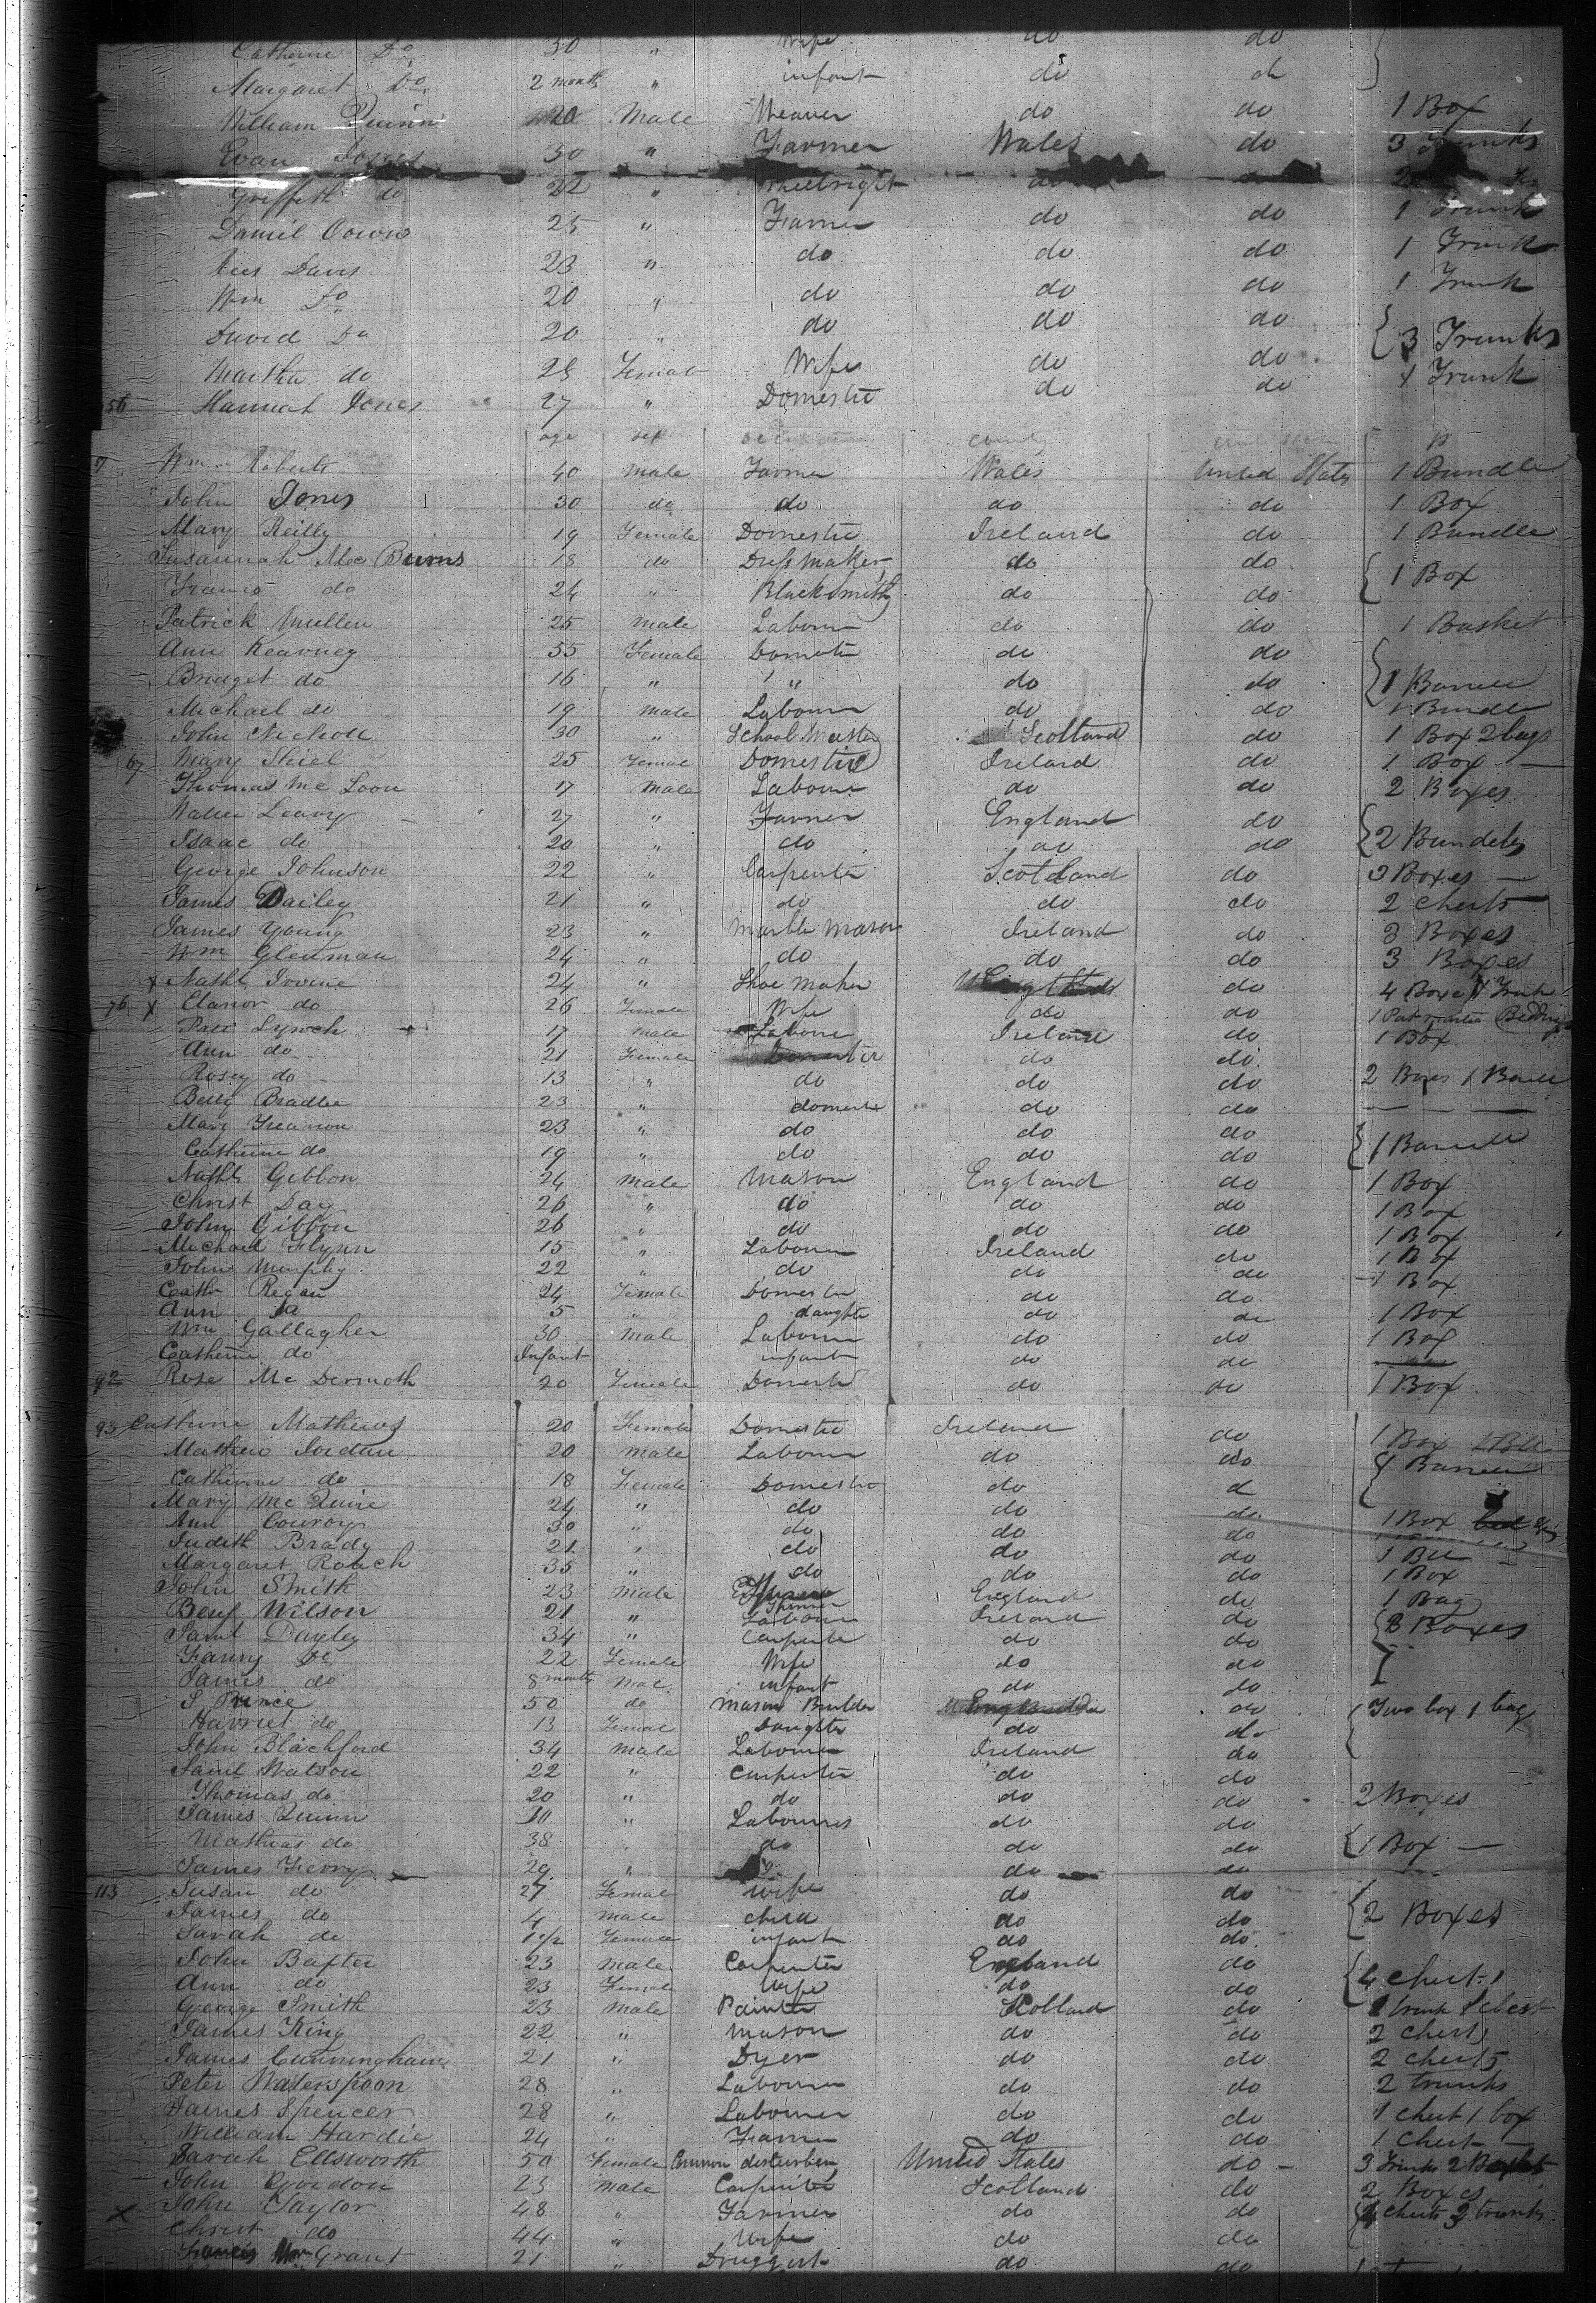 Catherine Do 30 " Wife do do
Margaret Do 2 months " infant do do
William Quinn 20 Male Weaver do do 1 Box
Evan Jones 30 " Farmer Wales do 3 Trunks
Griffith do 22 " Wheelright do
Daniel Owens 25 " Farmer do do 1 Trunk
Rees Davis 23 " do do do 1 Trunk
Wm Do 20 " do do do 1 Trunk
David Do 20 " do do do 3 Trunks
Martha do 25 Female Wife do do
56 Hannah Jones 27 " Domestic do do 1 Trunk
age sex occupation county
Wm Roberts 40 male Farmer Wales United States 1 Bundle
John Jones 30 do do do do 1 Box
Mary Reilly 19 Female Domestic Ireland do 1 Bundle
Susannah Mc Burns 18 do Dress Maker do do 1 Box
Francis do 24 " Blacksmith do do
Patrick Mullen 25 male Labourer do do 1 Basket
Ann Kearney 55 Female Domestic do do
Bridget do 16 " " do do 1 Barrell
Michael do 19 male Labourer do do 1 Bundle
John Nicholl 30 " School Master Scotland do 1 Box 2 bags
67 Mary Shiel 25 Female Domestic Ireland do 1 Box
Thomas Mc Loon 17 Male Labourer do do 2 Boxes
Leavy 27 " Farmer England do
Isaac do 20 " do do do 2 Bundels
George Johnson 22 " Carpenter Scotland do 3 Boxes
James Dailey 21 " do do do 2 chests
James Young 23 " Marble Mason Ireland do 3 Boxes
Wm Glenman 24 " do do do 3 Boxes
x Nathl Irvine 24 " Shoe Maker do 4 Boxes
76 x Elanor do 26 Female Wife do do
Patt Lynch 17 male Labourer Ireland do 1 Box
Ann do 21 Female Domestic do do
Rosey do 13 " do do do 2 Boxes 1 Barrell
Betty Bradlee 23 " domestic do do
Mary 23 " do do do
Catherine do 19 " do do do 1 Barrell
Nathl Gibbon 24 male Mason England do 1 Box
Christ Day 26 " do do do 1 Box
John Gibbon 26 " do do do 1 Box
Michael Flynn 15 " Labourer Ireland do 1 Box
John Murphy 22 " do do do 1 Box
Cath Regan 24 Female Domestic do do
Ann Do 5 " daughter do do 1 Box
Wm Gallagher 30 Male Labourer do do 1 Box
Catherine do Infant infant do do
92 Rose Mc Dermoth 20 Female Domestic do do 1 Box
93 Catherine Mathews 20 Female Domestic Ireland do 1 Box
Mathew Jordan 20 male Labourer do do Barrell
Catherine do 18 Female Domestic do do
Mary Mc Quire 24 " do do do
Ann Conroy 30 " do do do 1 Box
Judith Brady 21 " do do do
Margaret Roach 35 " do do do 1 Box
John Smith 23 male England do 1 Bag
Benj Wilson 21 " Labourer Ireland do
Saml Dayley 34 " Carpenter do do Boxes
Fanny do 22 Female Wife do do
James do 8 months Mal infant do do
S Prince 50 do Mason Builder do Two box 1 bag
Harriet do 13 Female Daughter do do
John Blachford 34 male Labourer Ireland do
Saml Watson 22 " Carpenter do do
Thomas do 20 " do do do 2 Boxes
James Quinn 30 " Labourers do do
Mathias do 38 do do do 1 Box
James 29 " do do
113 Susan do 27 Female wife do do
James do 4 male child do do 2 Boxes
Sarah do 1 1/2 Female infant do do
John Baxter 23 male Carpenter England do
Ann do 23 Female Wife do do 4 chests
George Smith 23 male Painter Scotland do 1 trunk 1 chest
James King 22 " mason do do 2 chests
James Cunningham 21 " Dyer do do 2 chests
Peter Waterspoon 28 " Labourer do do 2 trunks
James Spencer 28 " Labourer do do 1 chest 1 box
William Hardie 24 " Farmer do do 1 chest
Sarah Ellsworth 50 Female United States do
John Gordon 23 male Carpenter Scotland do 2 Boxes
x John Taylor 48 " Farmer do do chests 3 trunks
Christ do 44 " Wife do do
Grant 21 " Druggist do do